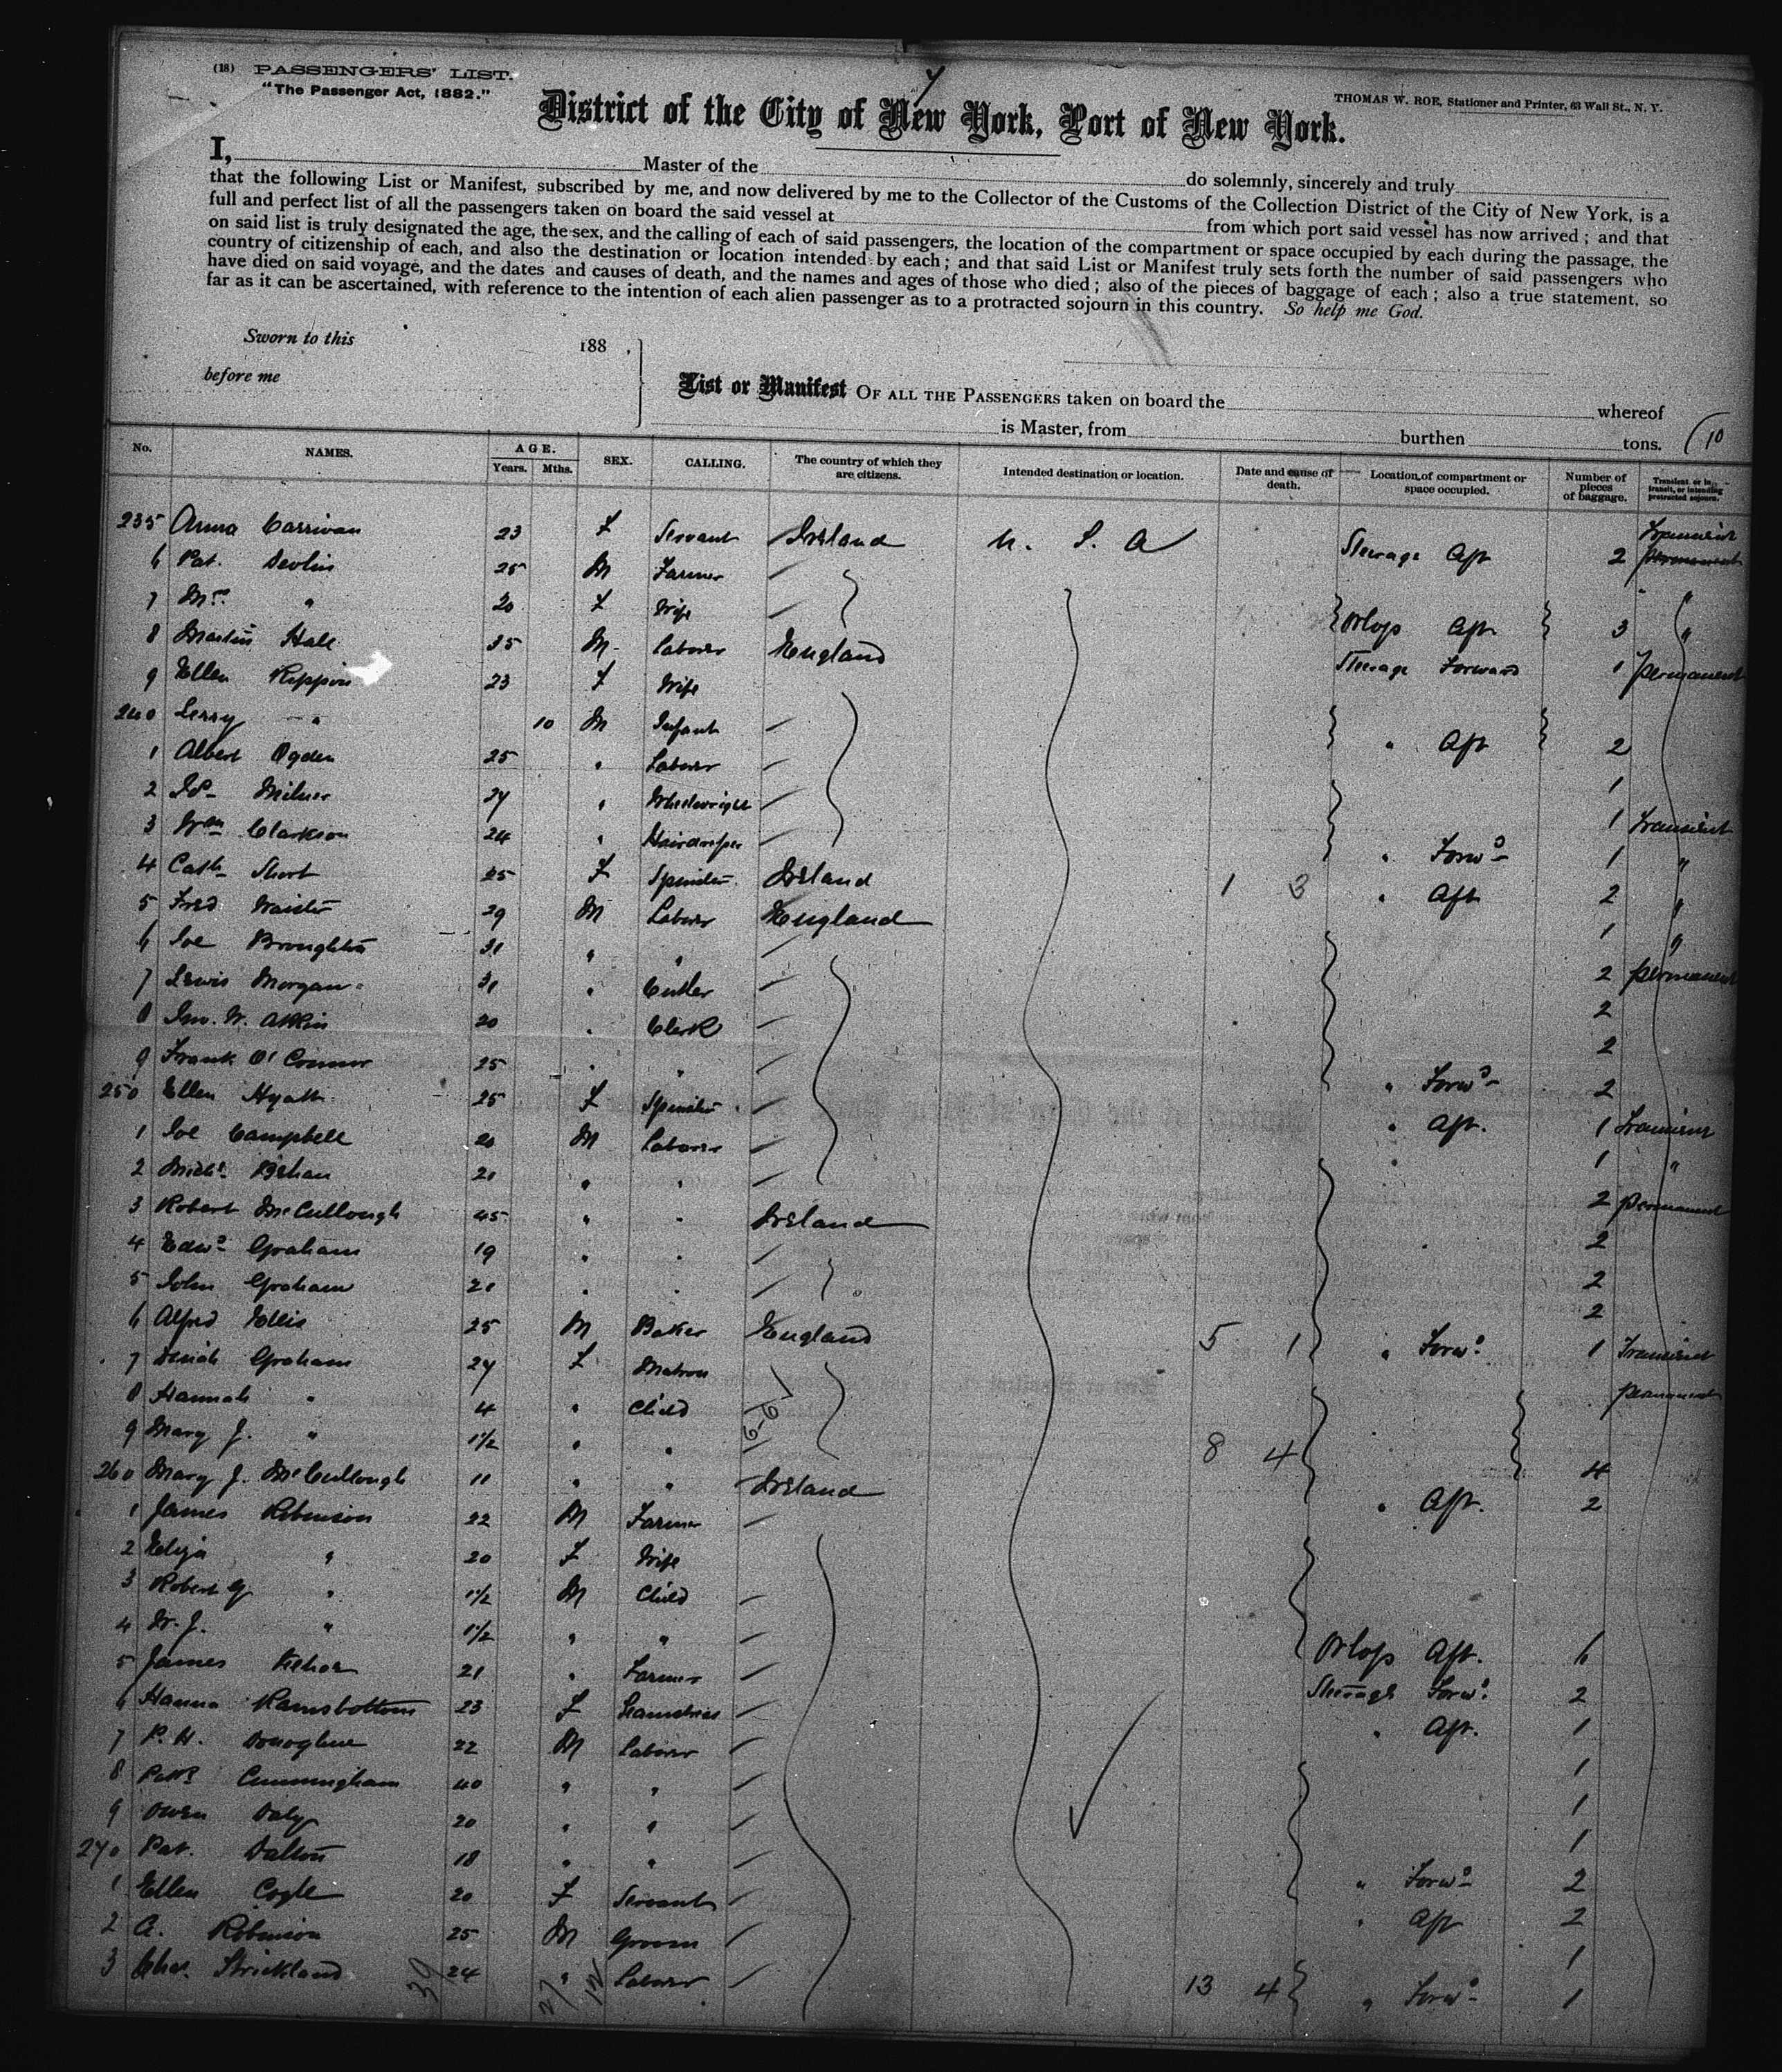 (18) PASSENGERS' LIST.
"The Passenger Act, 1882."
THOMAS W. ROE, Stationer and Printer, 63 Wall St., N. Y.
District of the City of New York, Port of New York.
I, Master of the do solemnly, sincerely and truly
that the following List or Manifest, subscribed by me, and now delivered by me to the Collector of the Customs of the Collection District of the City of New York, is a
full and perfect list of all the passengers taken on board the said vessel at from which port said vessel has now arrived; and that
on said list is truly designated the age, the sex, and the calling of each of said passengers, the location of the compartment or space occupied by each during the passage, the
country of citizenship of each, and also the destination or location intended by each; and that said List or Manifest truly sets forth the number of said passengers who
have died on said voyage, and the dates and causes of death, and the names and ages of those who died; also of the pieces of baggage of each; also a true statement, so
far as it can be ascertained, with reference to the intention of each alien passenger as to a protracted sojourn in this country. So help me God.
Sworn to this 188 .
before me
List or Manifest OF ALL THE PASSENGERS taken on board the whereof
is Master, from burthen tons. (10
No. NAMES. AGE. Years. Mths. SEX. CALLING. The country of which they are citizens. Intended destination or location. Date and cause of death. Location of compartment or space occupied. Number of pieces of baggage. Transient or in transit, or intending protracted sojourn.
235 Anna Carrivan 23 F Servant Ireland U. S. A Steerage Aft 2 Transient permanent
6 Pat. Devlin 25 M Farmer "
7 Mrs " 20 F Wife Orlop Aft 3 "
8 Martin Hale 35 M Laborer England Steerage Forward 1 permanent
9 Ellen Rippon 23 F Wife
240 Leray " 10 M Infant " Aft 2
1 Albert Ogden 25 " Laborer 1
2 Milner 27 " Wheelwright 1 Transient
3 Wm Clarkson 24 " Hairdresser " Forwd 1 "
4 Cath Short 25 F Spinster Ireland 1 3 " Aft 2 "
5 Fred Waister 29 M Laborer England 1 "
6 Joe Broughton 31 " " 2 permanent
7 Lewis Morgan 31 " Cutler 2
8 Jno. W. Atkin 20 " Clerk 2
9 Frank O'Connor 25 " " " Forwd 2
250 Ellen Hyatt 25 F Spinster " Aft. 1 Transient
1 Joe Campbell 20 M Laborer 1 "
2 Michl. Behan 21 " " 2 permanent
3 Robert McCullough 45 " " Ireland 2
4 Edwd Graham 19 " " 2
5 John Graham 21 " " 2
6 Alfred Ellis 25 M Baker England 5 1 " Forwd 1 Transient
7 Graham 27 F Matron permanent
8 Hannah " 4 " Child
9 Mary J. " 1½ " " 8 4 4
260 Mary J. McCullough 11 " " Ireland " Aft. 2
1 James Robinson 22 M Farmer
2 Eliza " 20 F Wife
3 Robert G " 1½ M Child
4 W. J. " 1½ " " Orlop Aft. 6
5 James 21 " Farmer Steerage Forwd 2
6 Hanna Ramsbottom 23 F Seamstress " Aft. 1
7 P. H. Donoghue 22 M Laborer 1
8 Patk Cunningham 40 " " 1
9 Owen Daly 20 " " 1
270 Pat. Dalton 18 " " " Forwd 2
1 Ellen Cogle 20 F Servant " Aft 2
2 A. Robinson 25 M Groom 1
3 Chas. Strickland 24 " Laborer 13 4 " Forwd 1
39 27 12